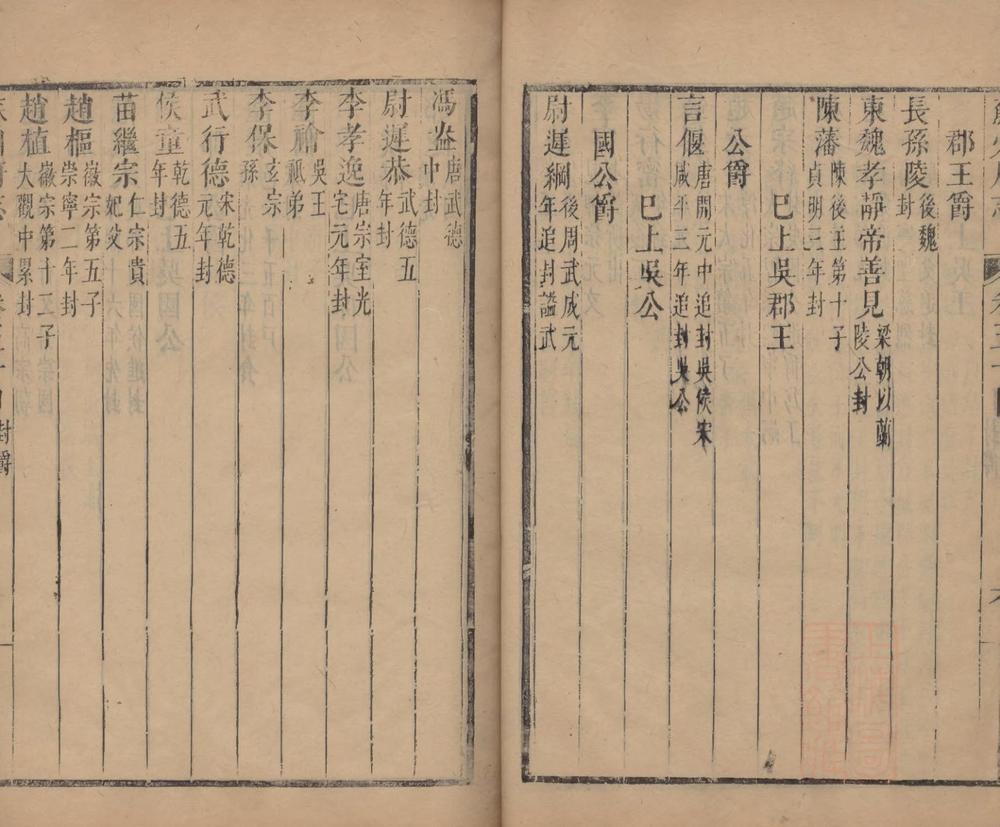 郡王爵
長孫陵後魏封
東魏孝靜帝善見梁朝以蘭陵公封
陳藩陳後王第十子貞明三年封
巳上吳郡王
公爵
言偃唐開元中追封吳侯宋咸平三年追封吳公
巳上吳公
國公爵
尉遲綱後周武成元年追封謚武
馮盎唐武德中封
尉遲恭武德五年封
李孝逸唐宗室光宅元年封
李吳王祗弟
李保玄宗孫
武行德宋乾德元年封
侯童乾德五年封
苗繼宗仁宗貴妃父
趙樞徽宗第五子崇寧二年封
趙植徽宗第十二子大觀中累封
封爵